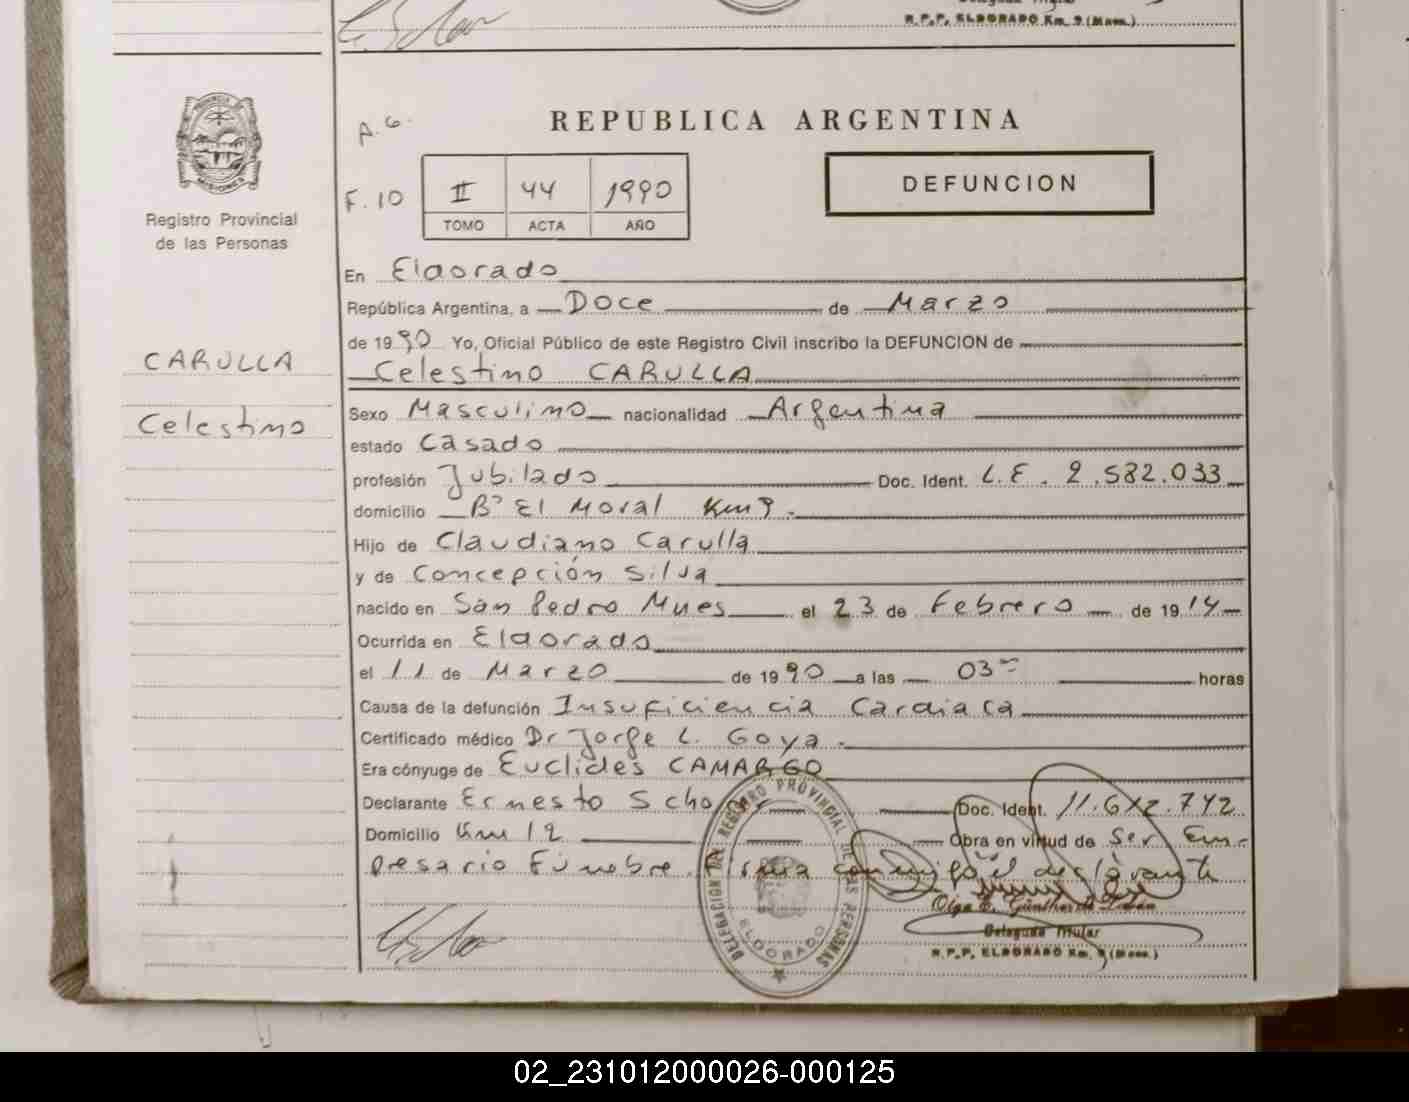 R.P.P. ELDORADO Km. 9 (Mnes.)
PROVINCIA DE
MISIONES
Registro Provincial
de las Personas
CARULLA
Celestino
A.G.
REPUBLICA ARGENTINA
F. 10
II 44 1990
TOMO ACTA AÑO
DEFUNCION
En Eldorado
República Argentina, a Doce de Marzo
de 1990 Yo, Oficial Público de este Registro Civil inscribo la DEFUNCION de
Celestino CARULLA
Sexo Masculino nacionalidad Argentina
estado Casado
profesión Jubilado Doc. Ident. L.E. 2.582.033
domicilio Bº El Moral Km 9.
Hijo de Claudiano Carulla
y de Concepción Silva
nacido en San Pedro Mnes el 23 de Febrero de 1914
Ocurrida en Eldorado
el 11 de Marzo de 1990 a las 03 horas
Causa de la defunción Insuficiencia Cardiaca
Certificado médico Dr Jorge L. Goya.
Era cónyuge de Euclides CAMARGO
Declarante Ernesto Doc. Ident. 11.612.742
Domicilio Km 12 Obra en virtud de Ser Em-
presario Fúnebre. Firma conmigo el declarante
DELEGACION DEL REGISTRO PROVINCIAL DE LAS PERSONAS
ELDORADO
Olga E. Günther de
Delegada Titular
R.P.P. ELDORADO Km. 9 (Mnes.)
02_231012000026-000125